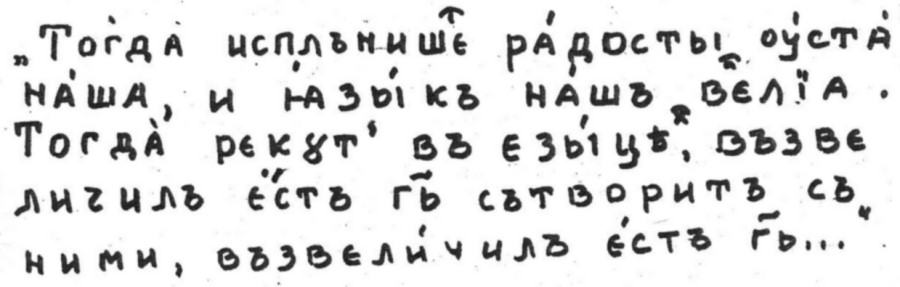 „Тогда̀ исплънишеⷮ ра́досты оу́ста̀
на́ша, и ꙗзы́къ на́шъ велїа.
Тогда̀ рекꙋт' въ езы́цѣ, възве
личилъ е҆́стъ г҃ь сътворитъ съ
ними, възвели́чилъ е́стъ г҃ь..."